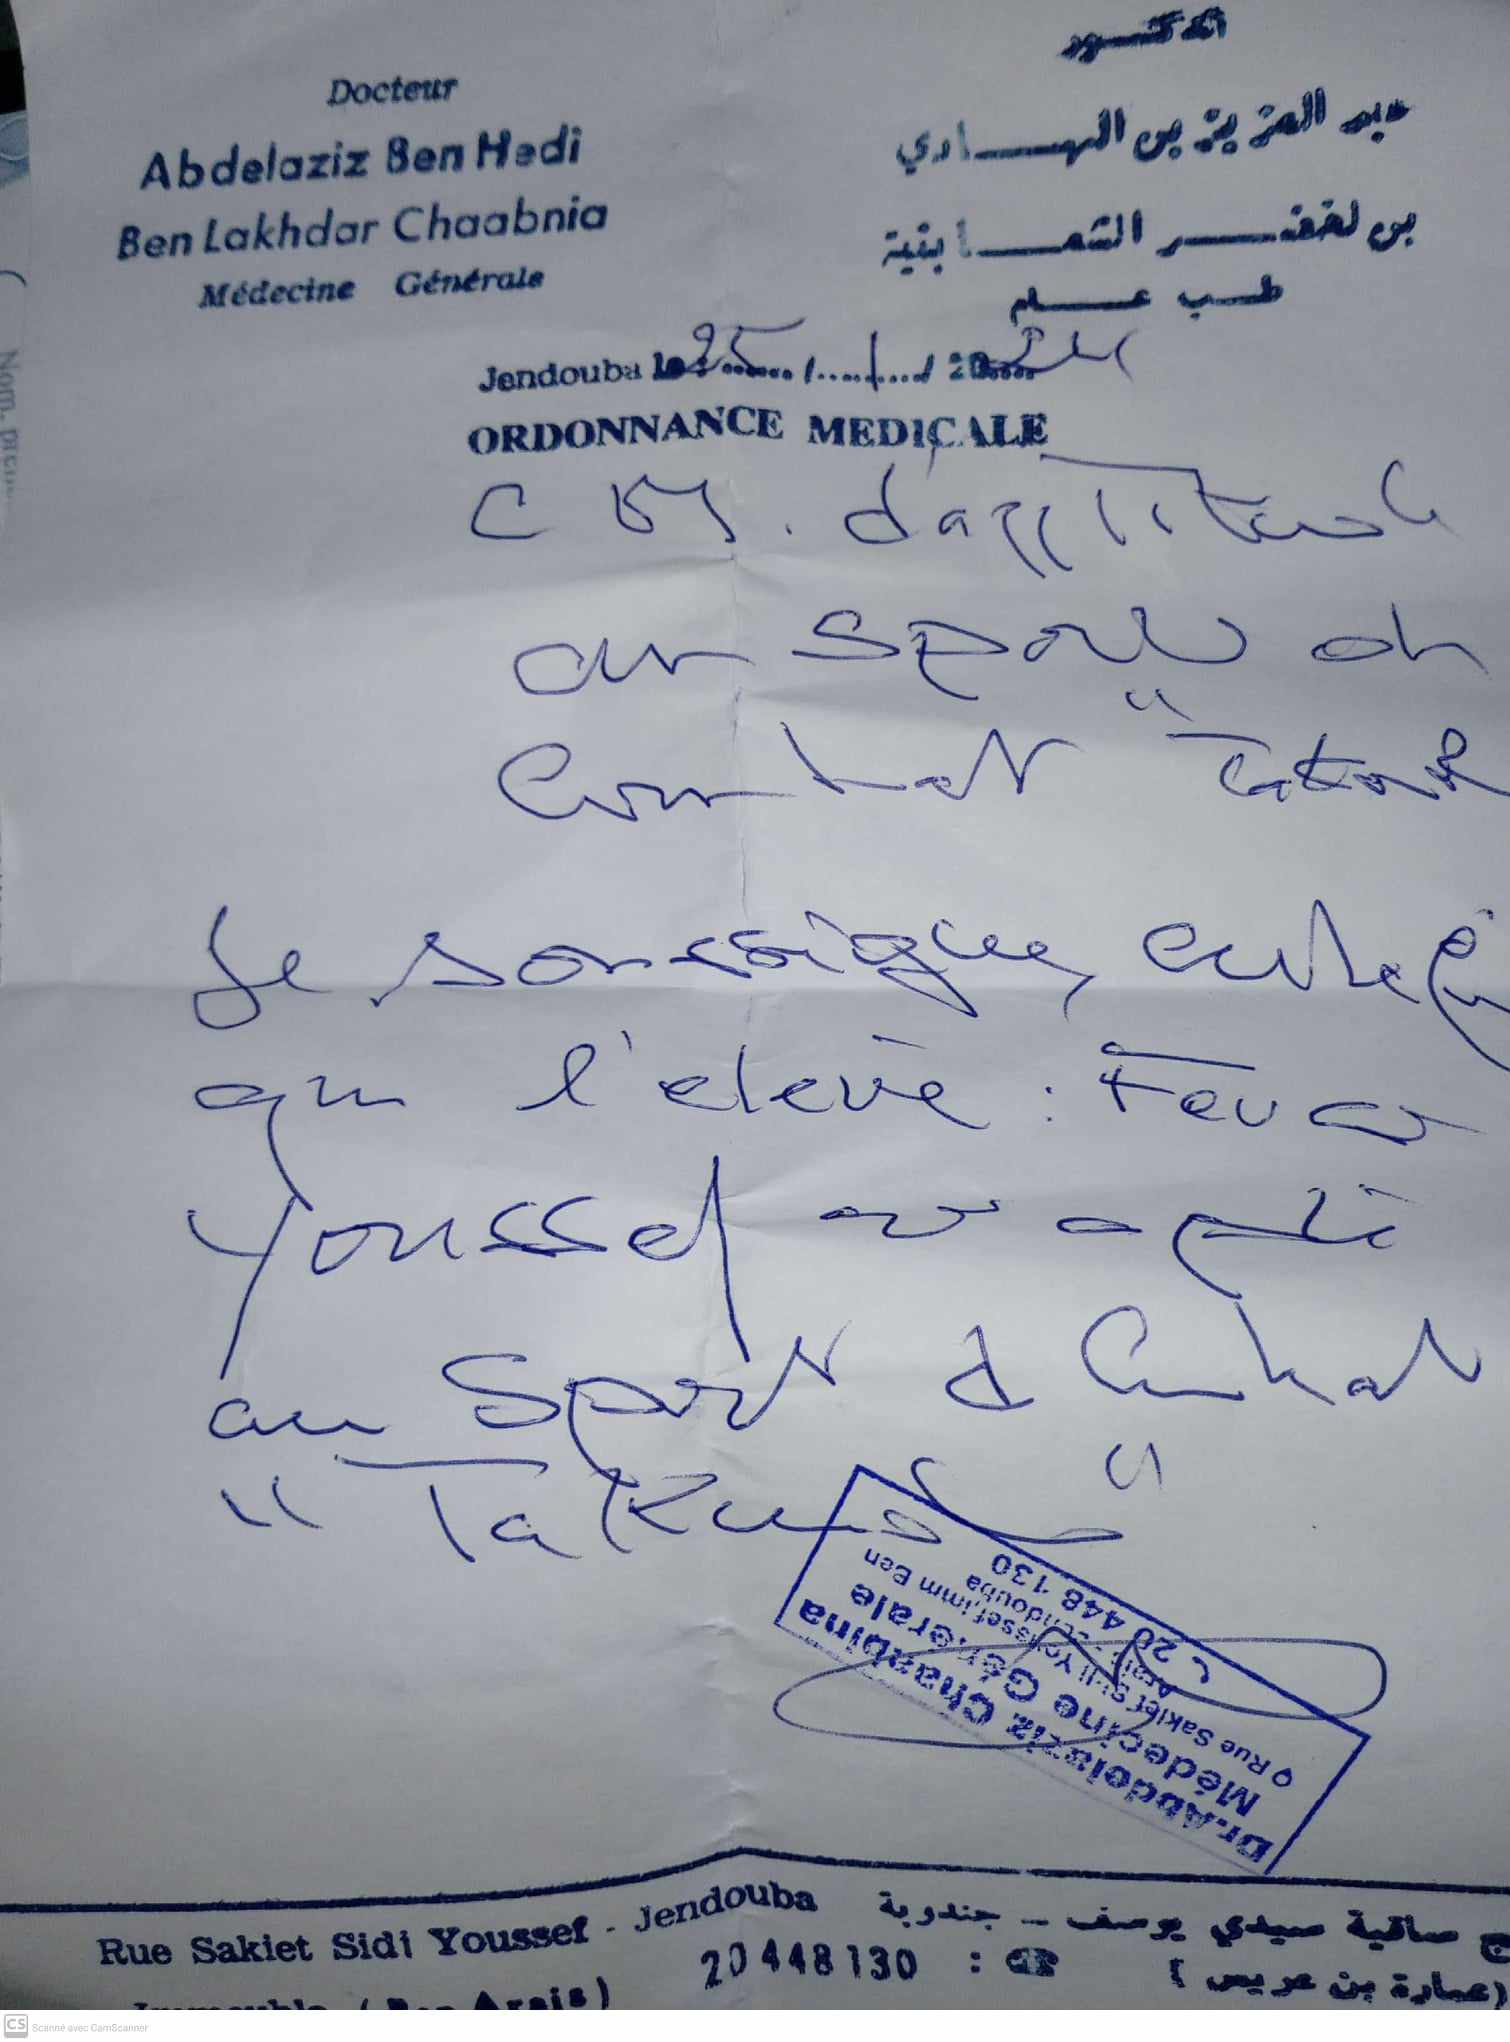 Docteur
Abdelaziz Ben Hedi
Ben Lakhdar Chaabnia
Médecine Générale
الدكتور
عبد العزيز بن الهادي
بن لخضر الشعابنية
طب عام
Jendouba le 25/1/2024
ORDONNANCE MEDICALE
C M. d'apptitude
au sport de
Combat "
Je soussigne, certifie
que l'eleve :
Youssef apte
au Sport d Combat
" "
Dr. Abdelaziz Chaabnia
Médecine Générale
Rue Sakiet Sidi Youssef imm Ben
Arais - Jendouba
20 448 130
Rue Sakiet Sidi Youssef - Jendouba
20 448 130 :
ج ساقية سيدي يوسف - جندوبة
(عمارة بن عريس)
Immeuble (Ben Arais)
CS Scanné avec CamScanner